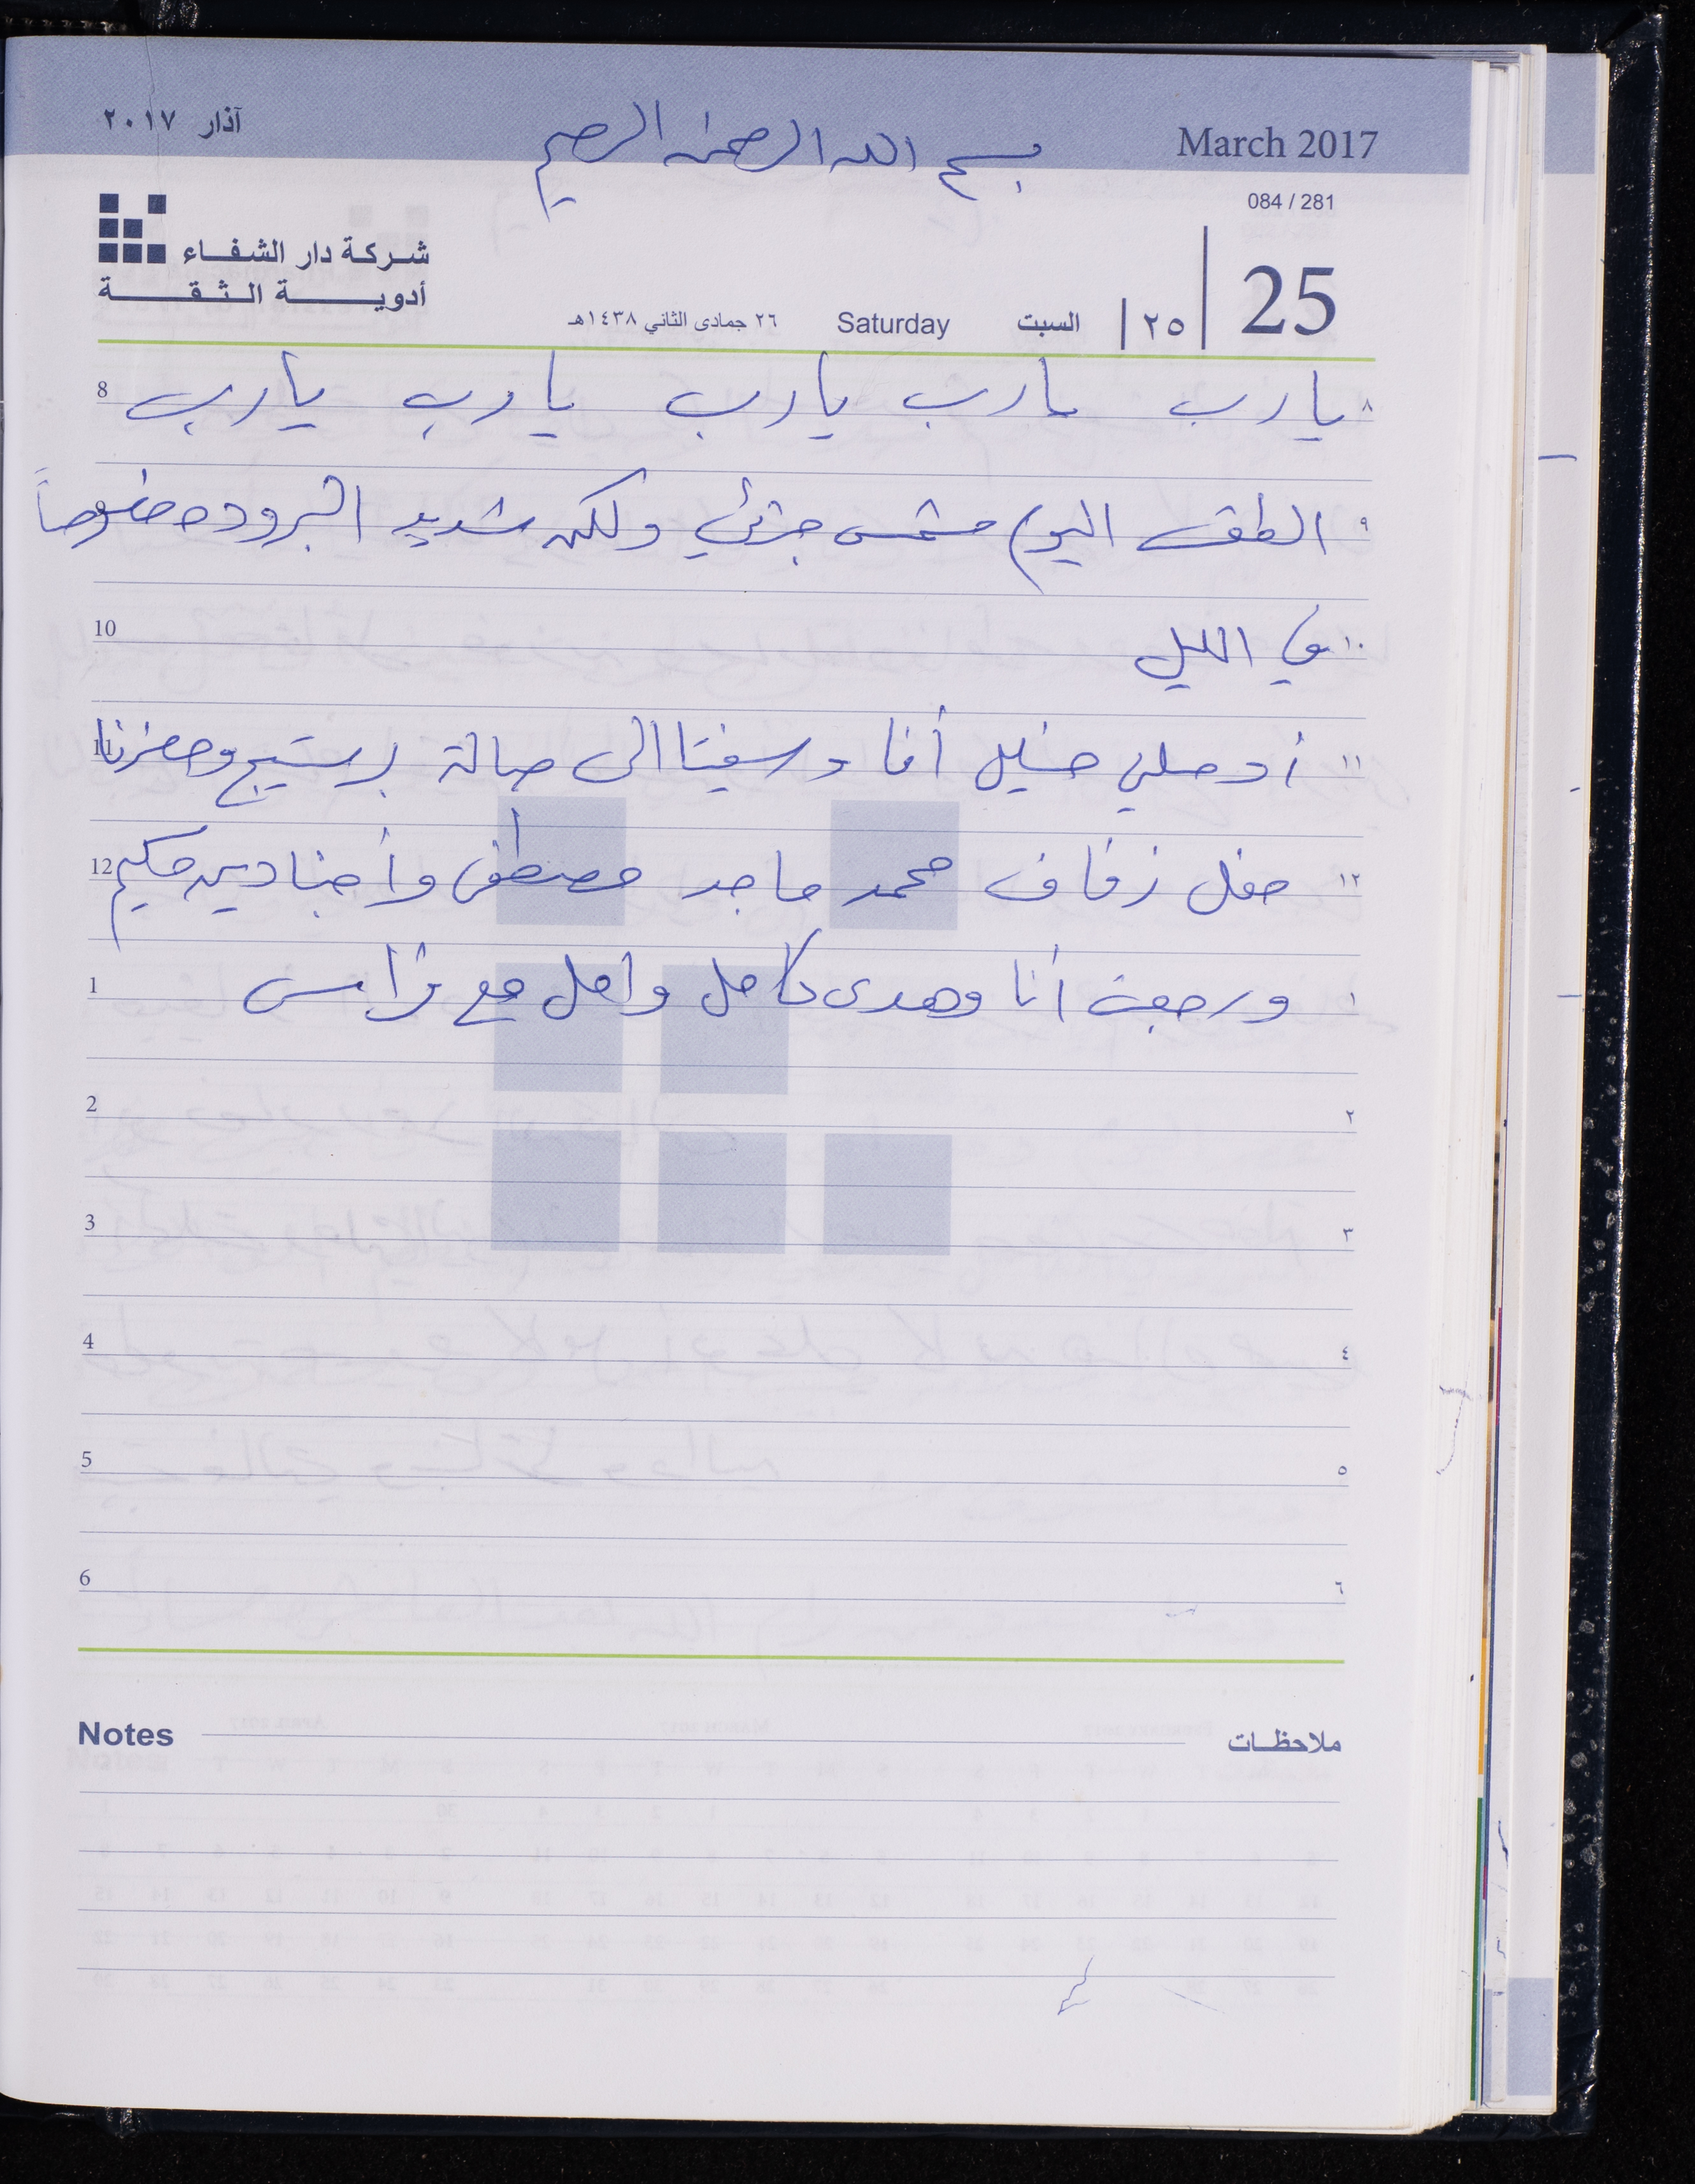 آذار ٢٠١٧
بسم الله الرحمن الرحيم
March 2017
084 / 281
شركة دار الشفاء
أدوية الثقة
25 | ٢٥ | السبت Saturday ٢٦ جمادى الثاني ١٤٣٨هـ
٨ يارب يارب يارب يارب يارب 8
٩ الطقس اليوم مشمس جزئي ولكن شديد البروده خصوصاً 9
١٠ في الليل 10
١١ أوصلني خليل أنا وسفيتا الى صالة برستيج وحضرنا 11
١٢ حفل زفاف محمد ماجد مصطفى وأجنادين حكيم 12
١ ورجعت أنا وهدى كامل وامل مع فراس 1
٢ 2
٣ 3
٤ 4
٥ 5
٦ 6
Notes ملاحظات